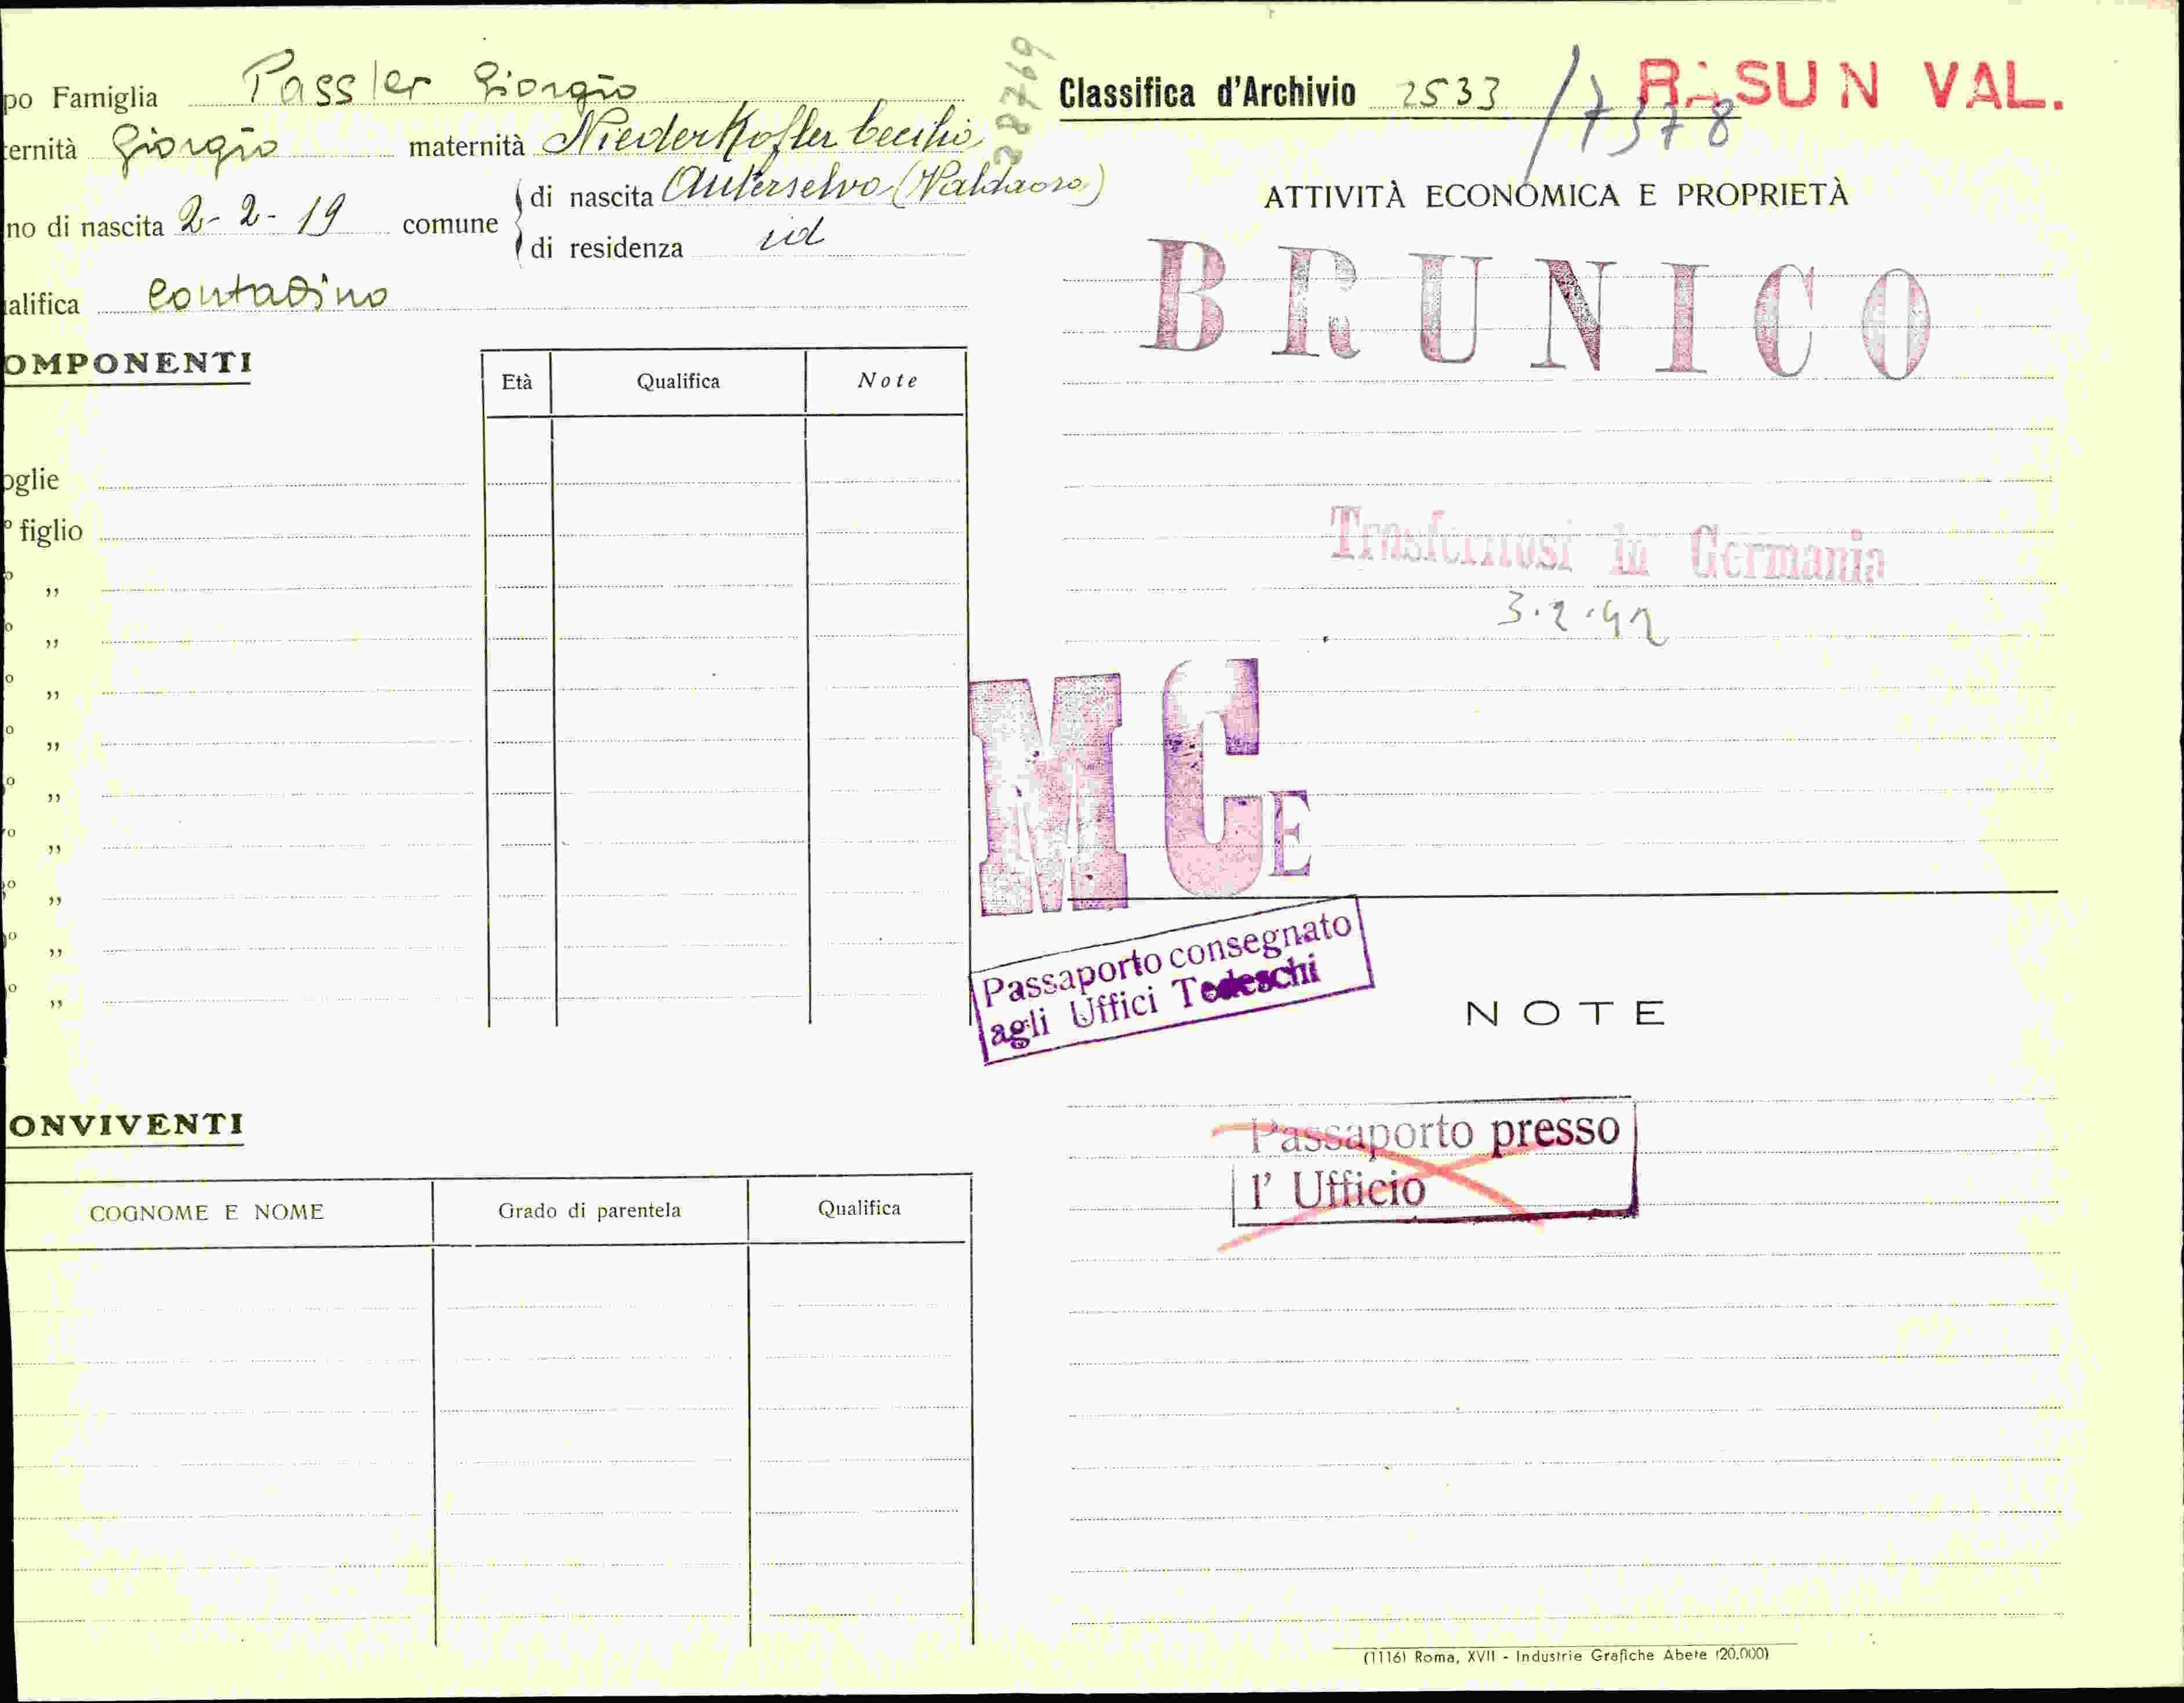 po Famiglia Passler Giorgio
ternità Giorgio maternità Niederkofler Cecilia
no di nascita 2-2-19 comune
di nascita Anterselva (Valdaora)
di residenza id
alifica contadino
OMPONENTI
Età Qualifica Note
oglie
° figlio
° „
° „
° „
° „
° „
° „
° „
° „
° „
ONVIVENTI
COGNOME E NOME Grado di parentela Qualifica
28769
Classifica d'Archivio 2533 / 7378
RASUN VAL.
ATTIVITÀ ECONOMICA E PROPRIETÀ
BRUNICO
Trasferitosi in Germania
3.2.42
MCE
Passaporto consegnato
agli Uffici Tedeschi
NOTE
Passaporto presso
l' Ufficio
(1116) Roma, XVII - Industrie Grafiche Abete (20.000)